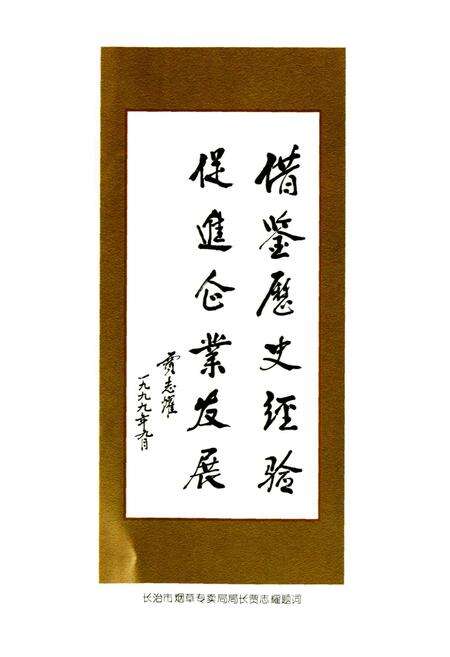 借鉴歷史經验
促進企業发展
贾志耀
一九九九年九月
长治市烟草专卖局局长贾志耀题词